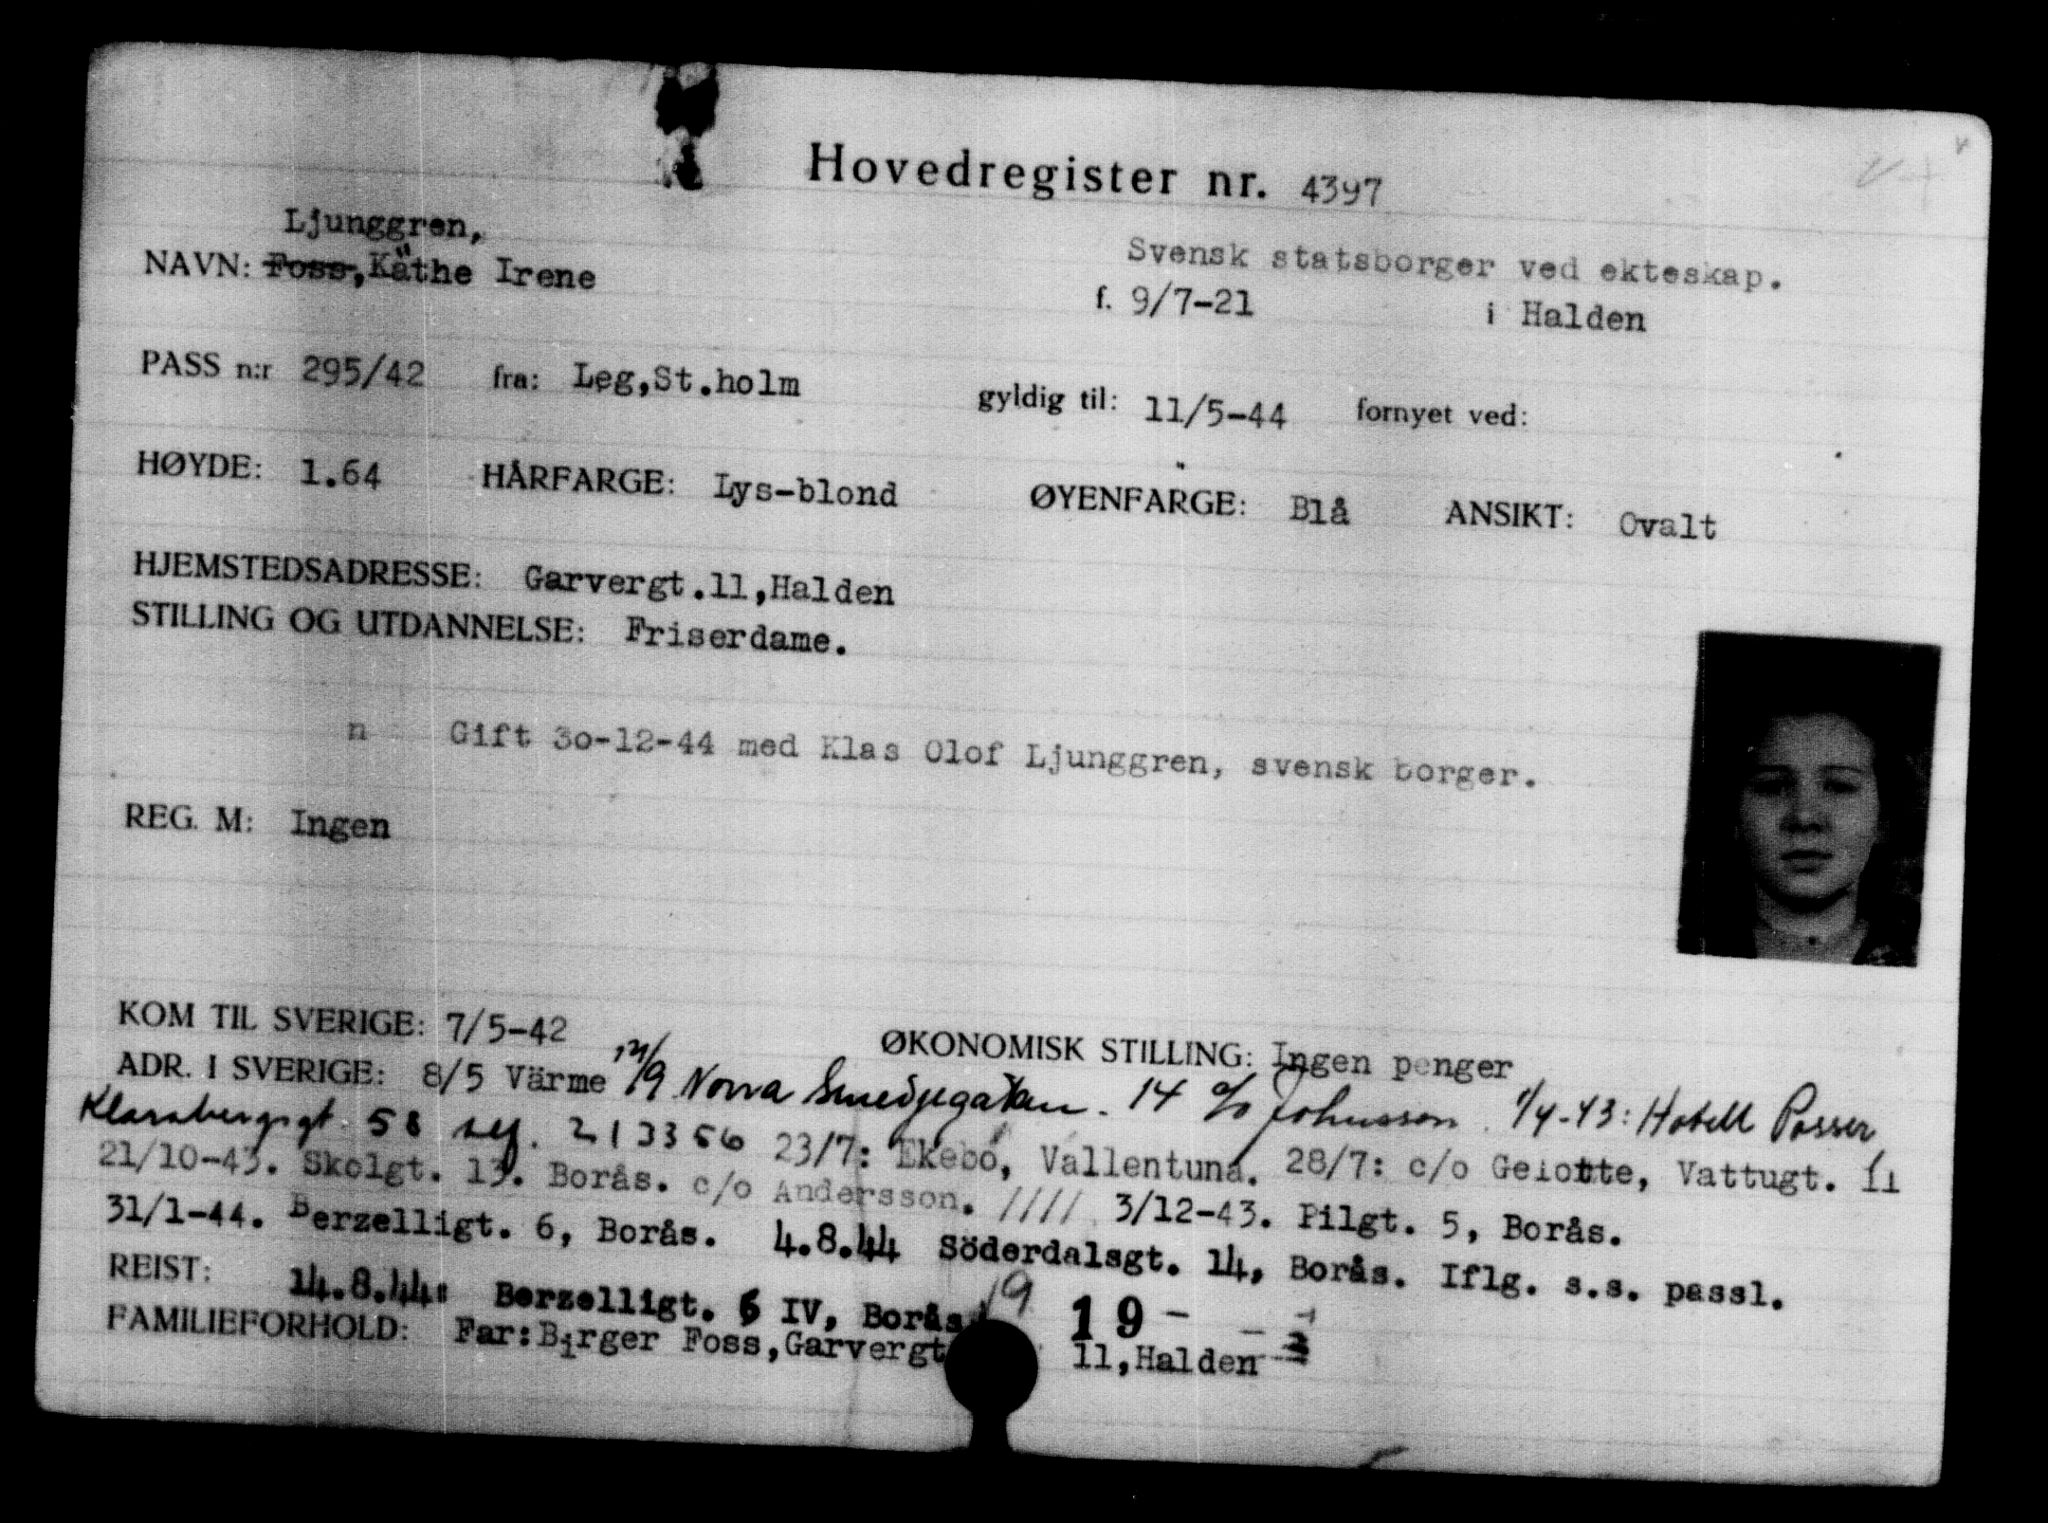 Hovedregister nr. 4397
Ljunggren,
NAVN: Foss, Käthe Irene
Svensk statsborger ved ekteskap.
f. 9/7-21 i Halden
PASS n:r 295/42 fra: Leg,St.holm gyldig til: 11/5-44 fornyet ved:
HØYDE: 1.64 HÅRFARGE: Lys-blond ØYENFARGE: Blå ANSIKT: Ovalt
HJEMSTEDSADRESSE: Garvergt.11,Halden
STILLING OG UTDANNELSE: Friserdame.
n Gift 30-12-44 med Klas Olof Ljunggren, svensk borger.
REG. M: Ingen
KOM TIL SVERIGE: 7/5-42 ØKONOMISK STILLING: Ingen penger
ADR. I SVERIGE: 8/5 Värme /9 Norra Smedjegatan. 14 c/o Johnsson. 1/4-43: Hotell Posser
Klarabergsgt. 58 213356 23/7: Ekebo, Vallentuna. 28/7: c/o Gelotte, Vattugt. 11
21/10-43. Skolgt. 13. Borås. c/o Andersson. //// 3/12-43. Pilgt. 5, Borås.
31/1-44. Berzelligt. 6, Borås. 4.8.44 Söderdalsgt. 14, Borås. Iflg. s.s. passl.
REIST: 14.8.44: Berzelligt. 6 IV, Borås 19 19 -
FAMILIEFORHOLD: Far:Birger Foss,Garvergt 11,Halden